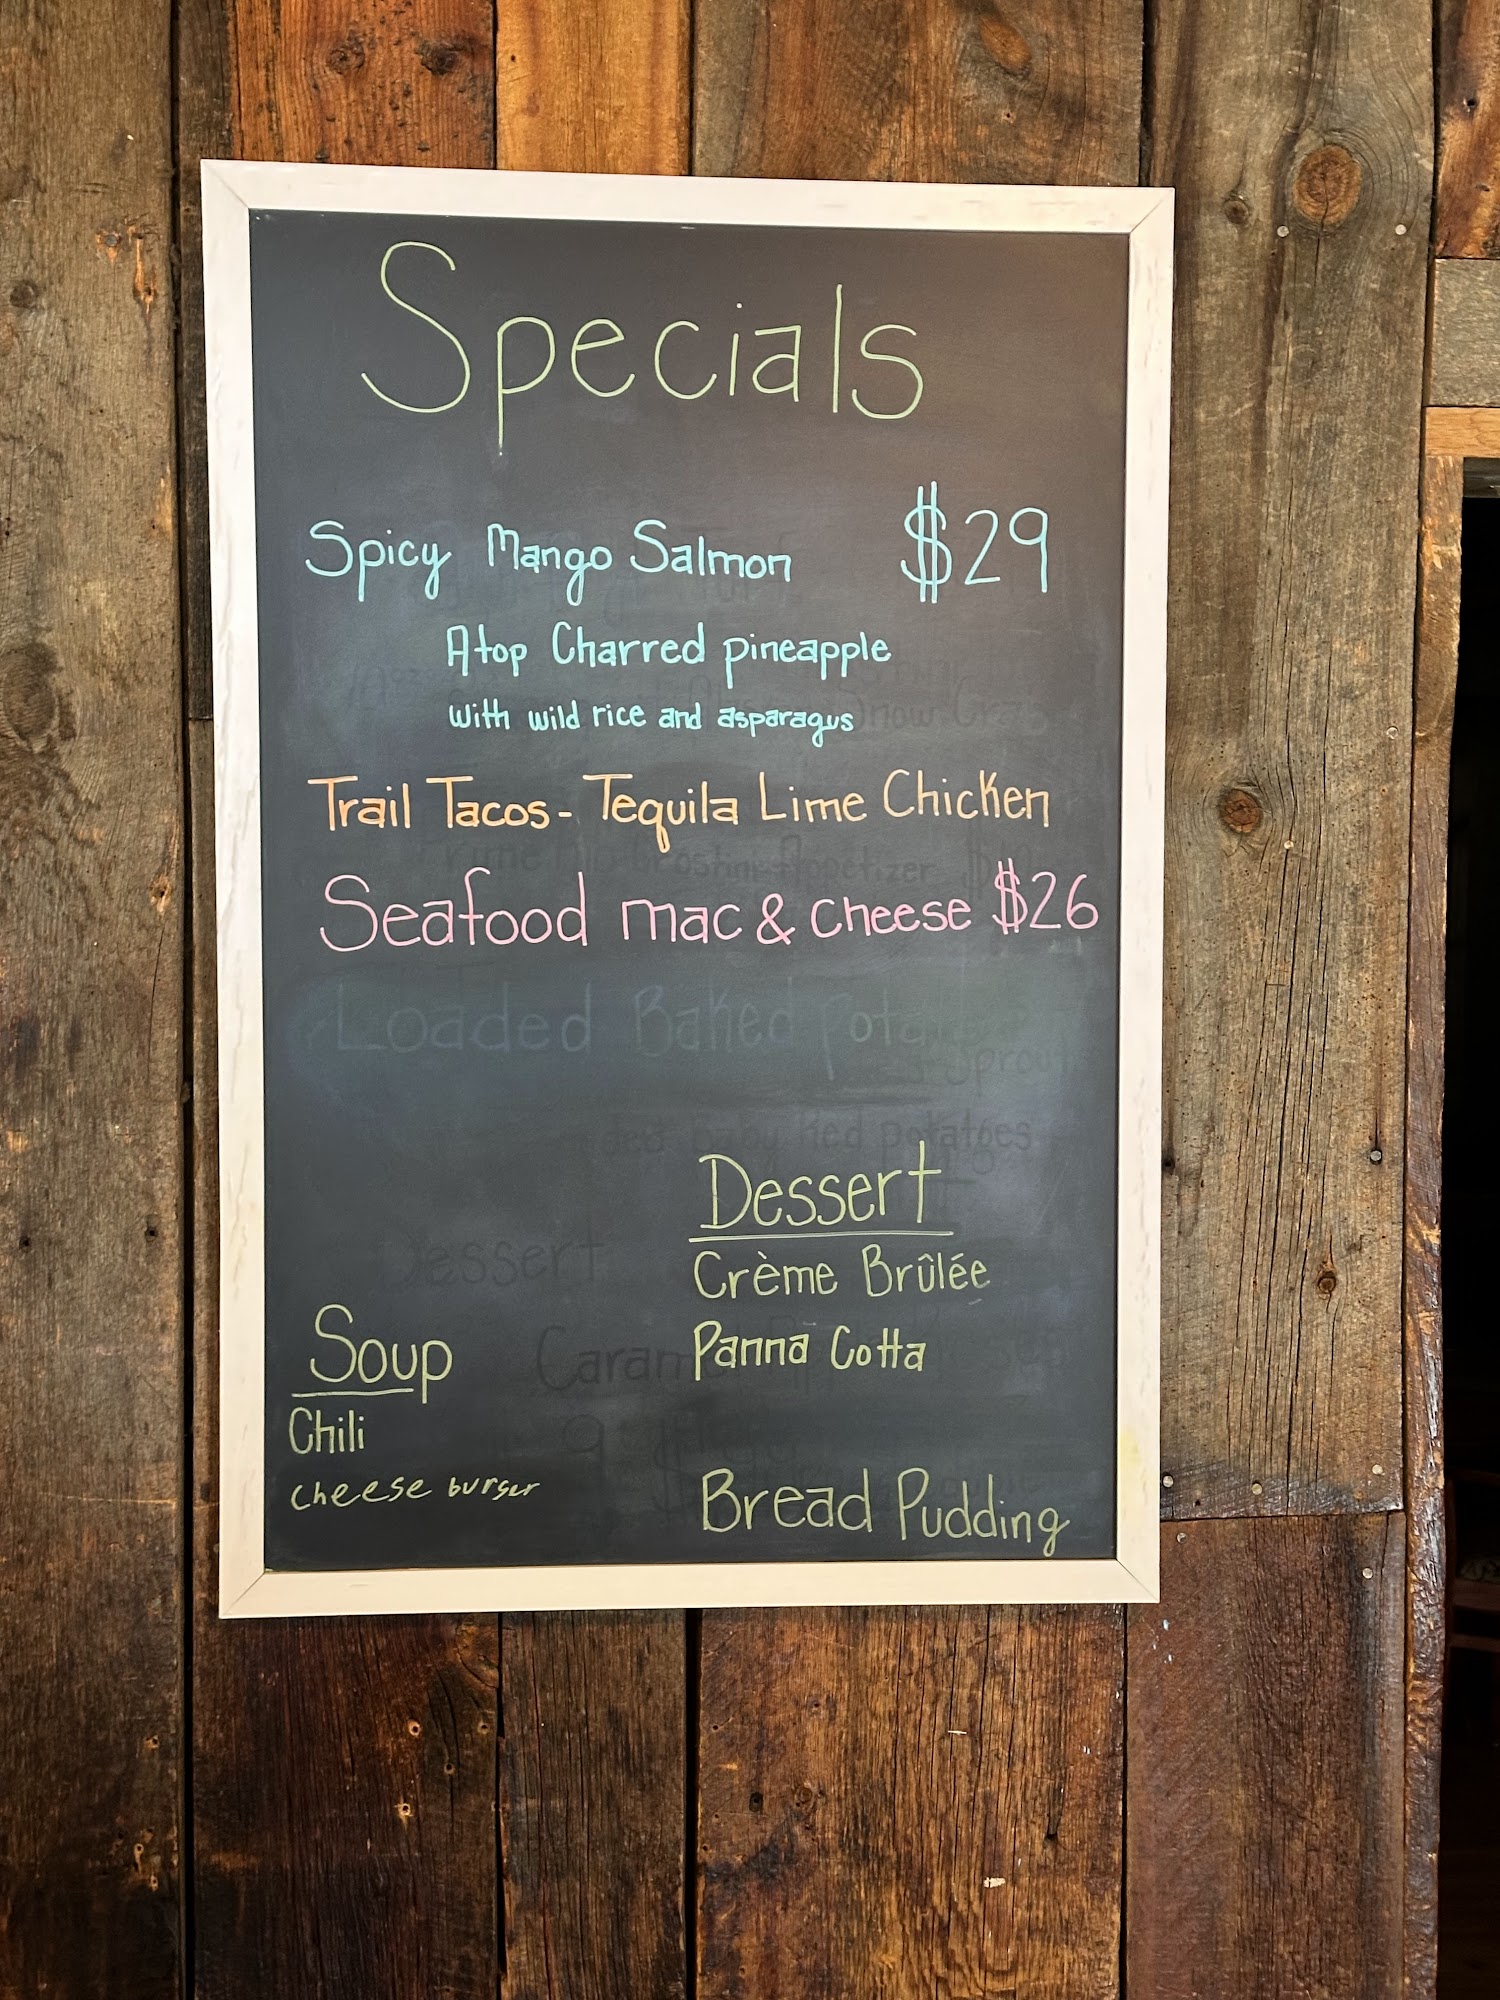 Specials
Spicy Mango Salmon $29
Atop Charred pineapple
with wild rice and asparagus
Trail Tacos - Tequila Lime Chicken
Seafood mac & cheese $26
Loaded Baked
Dessert
Crème Brûlée
Panna Cotta
Bread Pudding
Soup
Chili
cheese burger